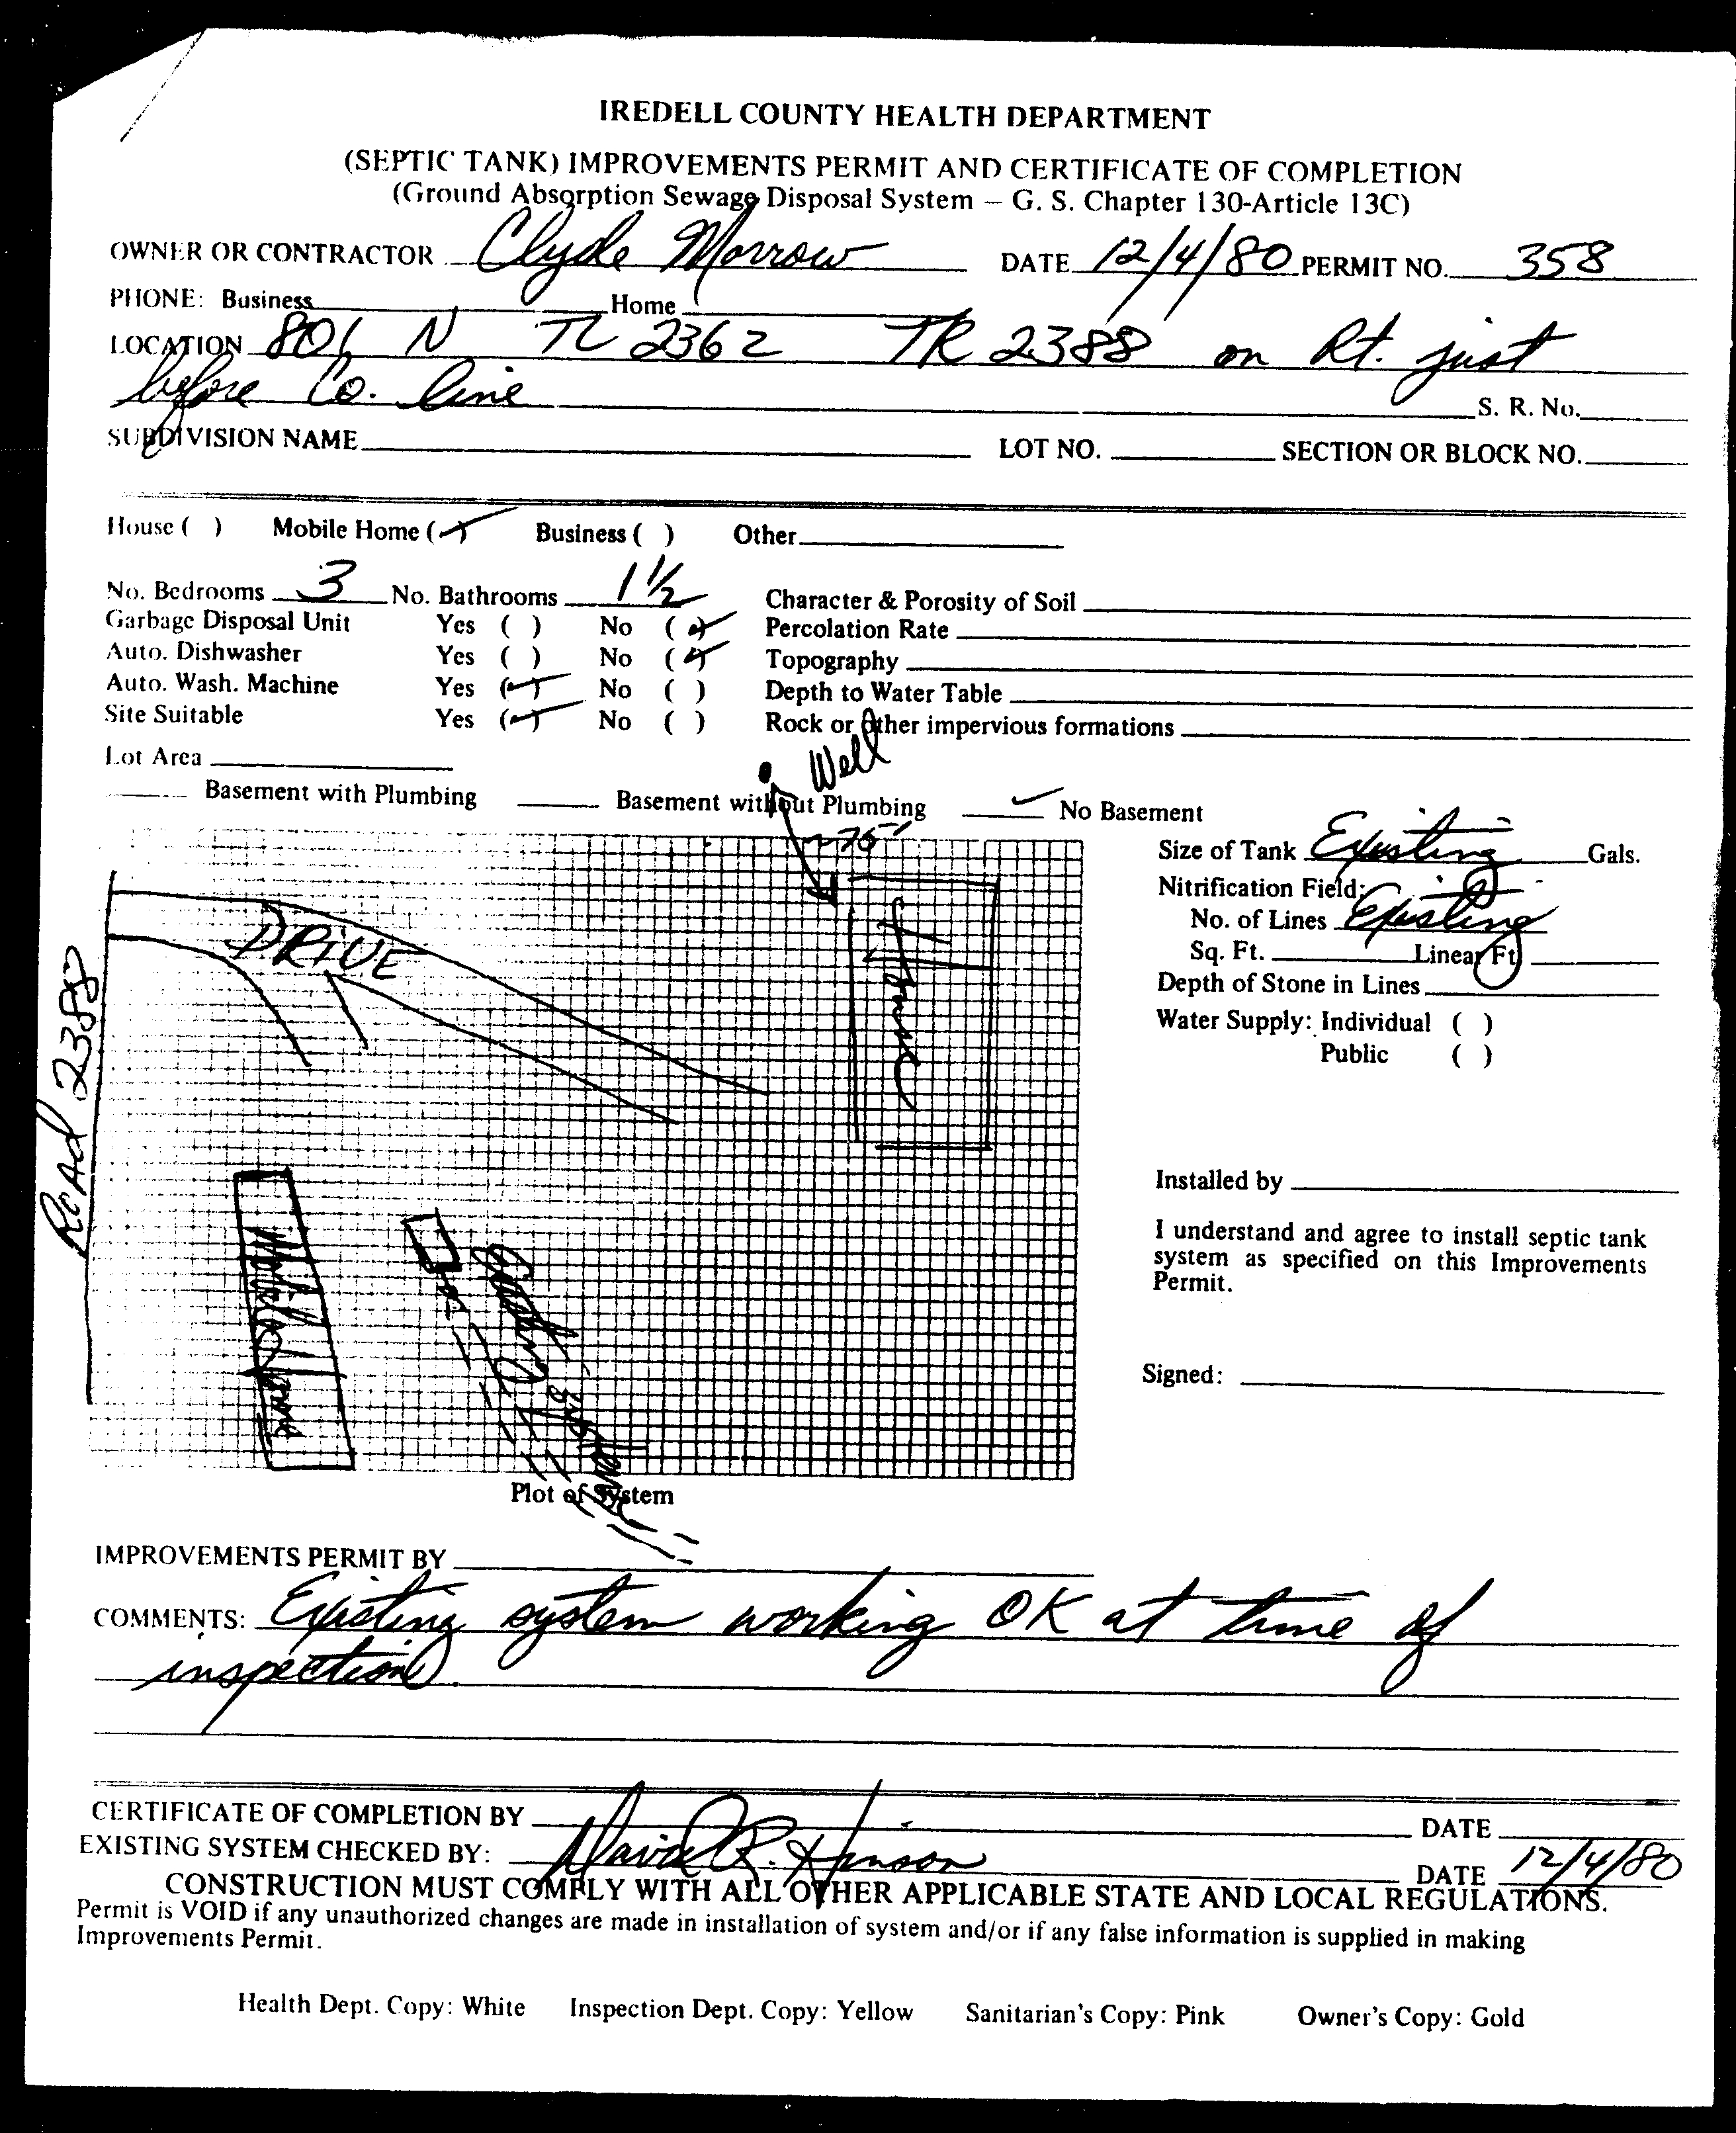 IREDELL COUNTY HEALTH DEPARTMENT
(SEPTIC TANK) IMPROVEMENTS PERMIT AND CERTIFICATE OF COMPLETION
(Ground Absorption Sewage Disposal System – G. S. Chapter 130-Article 13C)
OWNER OR CONTRACTOR Clyde Morrow DATE 12/4/80 PERMIT NO. 358
PHONE: Business Home
LOCATION 801 N TL 2362 TR 2388 on Rt. just
before Co. line S. R. No.
SUBDIVISION NAME LOT NO. SECTION OR BLOCK NO.
House ( ) Mobile Home (✓) Business ( ) Other
No. Bedrooms 3 No. Bathrooms 1 1/2 Character & Porosity of Soil
Garbage Disposal Unit Yes ( ) No (✓) Percolation Rate
Auto. Dishwasher Yes ( ) No (✓) Topography
Auto. Wash. Machine Yes (✓) No ( ) Depth to Water Table
Site Suitable Yes (✓) No ( ) Rock or other impervious formations
Lot Area
Well
Basement with Plumbing Basement without Plumbing ✓ No Basement
~75'
Size of Tank Existing Gals.
Nitrification Field:
No. of Lines Existing
Sq. Ft. Linear Ft.
Depth of Stone in Lines
Water Supply: Individual ( )
Public ( )
DRIVE
House
Road 2388
Mobile Home
Existing System
Installed by
I understand and agree to install septic tank
system as specified on this Improvements
Permit.
Signed:
Plot of System
IMPROVEMENTS PERMIT BY
COMMENTS: Existing system working OK at time of
inspection.
CERTIFICATE OF COMPLETION BY DATE
EXISTING SYSTEM CHECKED BY: David R. Hinson DATE 12/4/80
CONSTRUCTION MUST COMPLY WITH ALL OTHER APPLICABLE STATE AND LOCAL REGULATIONS.
Permit is VOID if any unauthorized changes are made in installation of system and/or if any false information is supplied in making
Improvements Permit.
Health Dept. Copy: White Inspection Dept. Copy: Yellow Sanitarian's Copy: Pink Owner's Copy: Gold